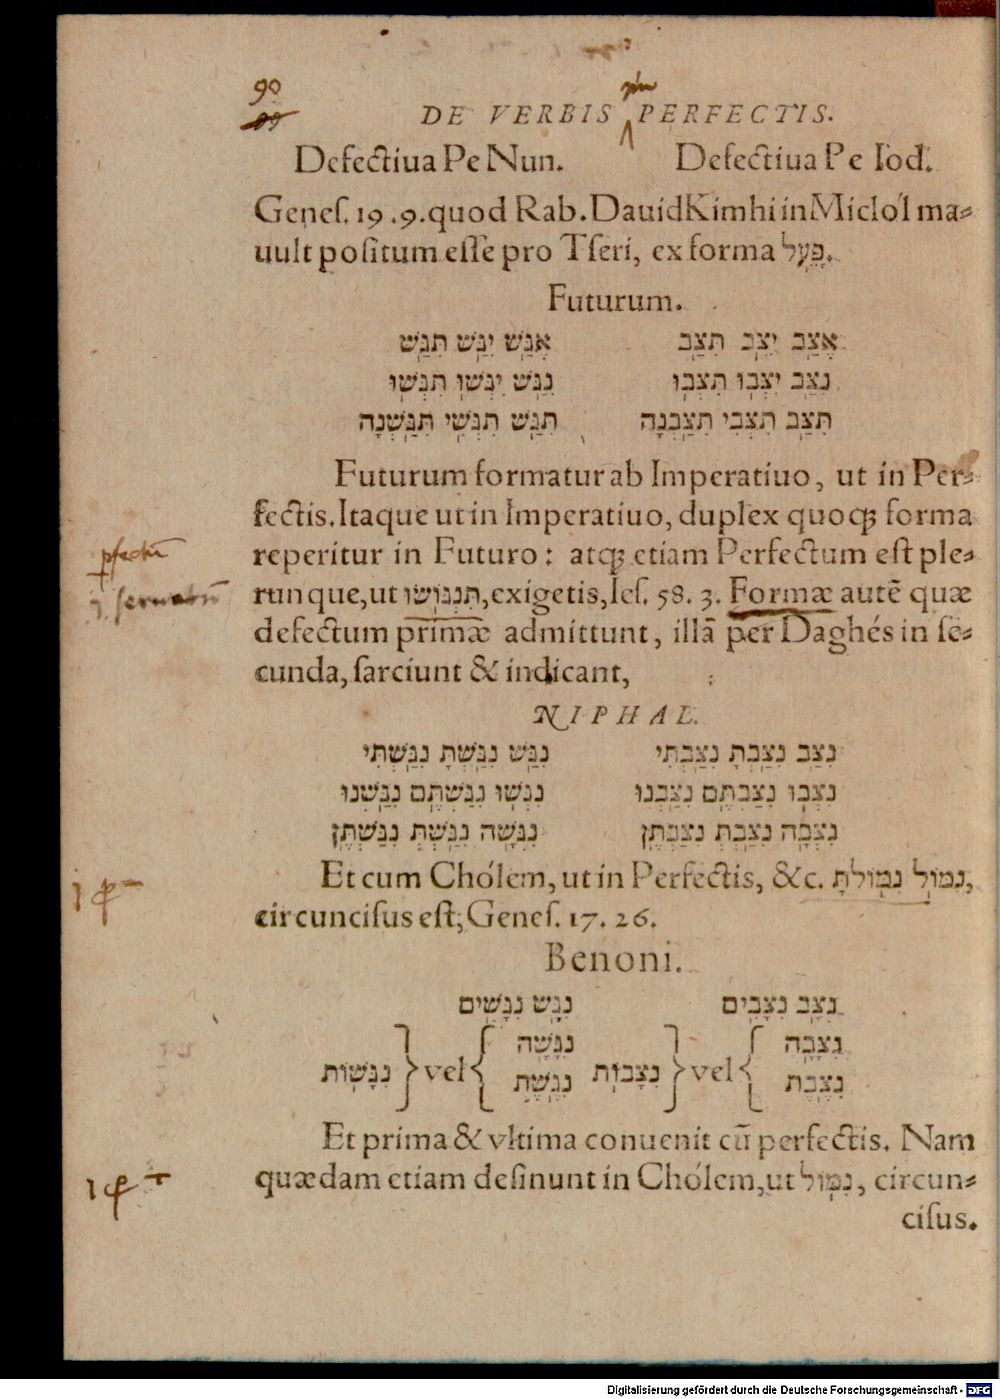 90
DE VERBIS PERFECTIS.
Defectiua Pe Nun. Defectiua Pe Iod.
Geneſ. 19.9. quod Rab. Dauid Kimhi in Miclól ma-
uult poſitum eſſe pro Tſeri, ex forma פָּעֵל.
Futurum.
אֶגַּשׁ יִגַּשׁ תִּגַּשׁ אֶצַּב יִצַּב תִּצַּב
נִגַּשׁ יִגְּשׁוּ תִּגְּשׁוּ נִצַּב יִצְּבוּ תִּצְּבוּ
תִּגַּשׁ תִּגְּשִׁי תִּגַּשְׁנָה תִּצַּב תִּצְּבִי תִּצַּבְנָה
Futurum formatur ab Imperatiuo, ut in Per-
fectis. Itaque ut in Imperatiuo, duplex quoqꝫ forma
reperitur in Futuro: atqꝫ etiam Perfectum eſt ple-
runque, ut תִּנְגּוֹשׂוּ, exigetis, Ieſ. 58. 3. Formæ autẽ quæ
defectum primæ admittunt, illã per Daghés in ſe-
cunda, ſarciunt & indicant,
NIPHAL.
נִגַּשׁ נִגַּשְׁתָּ נִגַּשְׁתִּי נִצַּב נִצַּבְתָּ נִצַּבְתִּי
נִגְּשׁוּ נִגַּשְׁתֶּם נִגַּשְׁנוּ נִצְּבוּ נִצַּבְתֶּם נִצַּבְנוּ
נִגְּשָׁה נִגַּשְׁתְּ נִגַּשְׁתֶּן נִצְּבָה נִצַּבְתְּ נִצַּבְתֶּן
Et cum Chólem, ut in Perfectis, &c. נִמּוֹל נִמּוֹלתָּ,
circunciſus eſt; Geneſ. 17. 26.
Benoni.
נִגָּשׁ נִגָּשִׁים נִצָּב נִצָּבִים
נִגָּשָׁה נִצָּבָה
נִגָּשׁוֹת vel נִצָּבוֹת vel
נִגֶּשֶׁת נִצֶּבֶת
Et prima & vltima conuenit cũ perfectis. Nam
quædam etiam deſinunt in Chólem, ut נִמּוֹל, circun-
ciſus.
Digitalisierung gefördert durch die Deutsche Forschungsgemeinschaft - DFG